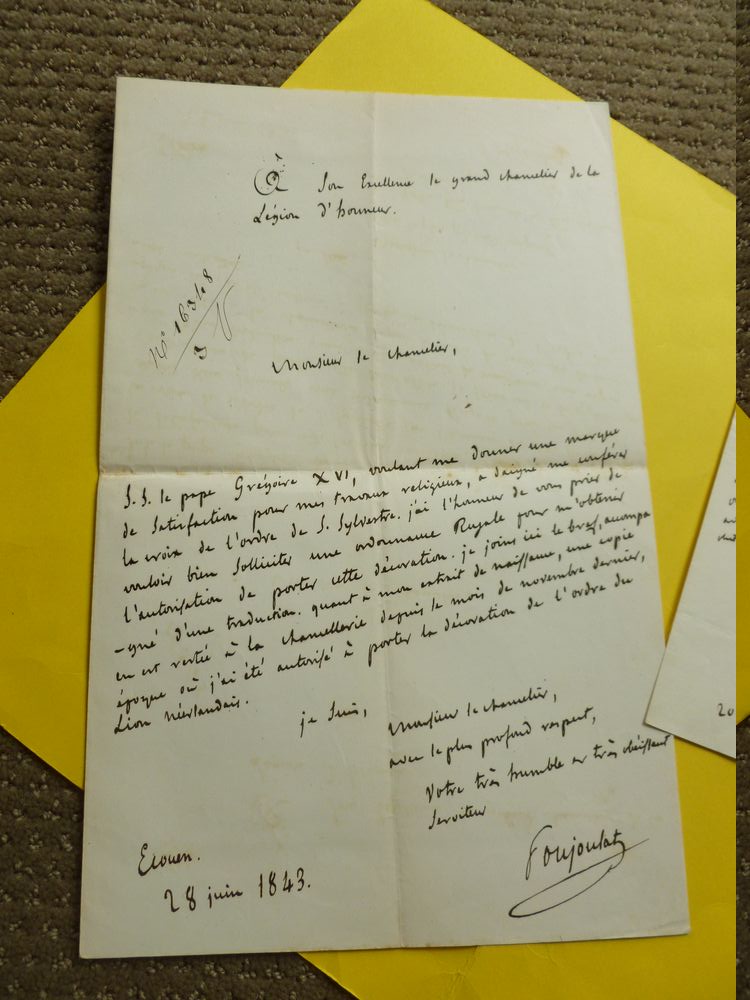 À Son Excellence le grand chancelier de la
Légion d'honneur.
N° 16348
3
Monsieur le chancelier,
S. S. le pape Grégoire XVI, voulant me donner une marque
de satisfaction pour mes travaux religieux, a daigné me conférer
la croix de l'ordre de S. Sylvestre. j'ai l'honneur de vous prier de
vouloir bien solliciter une ordonnance Royale pour m'obtenir
l'autorisation de porter cette décoration. je joins ici le bref, accompa
-gné d'une traduction. quant à mon extrait de naissance, une copie
en est restée à la chancellerie depuis le mois de novembre dernier,
époque où j'ai été autorisé à porter la décoration de l'ordre du
Lion néerlandais.
je suis,
Monsieur le chancelier,
avec le plus profond respect,
Votre très humble et très obéissant
Serviteur
Poujoulat
Ecouen.
28 juin 1843.
20